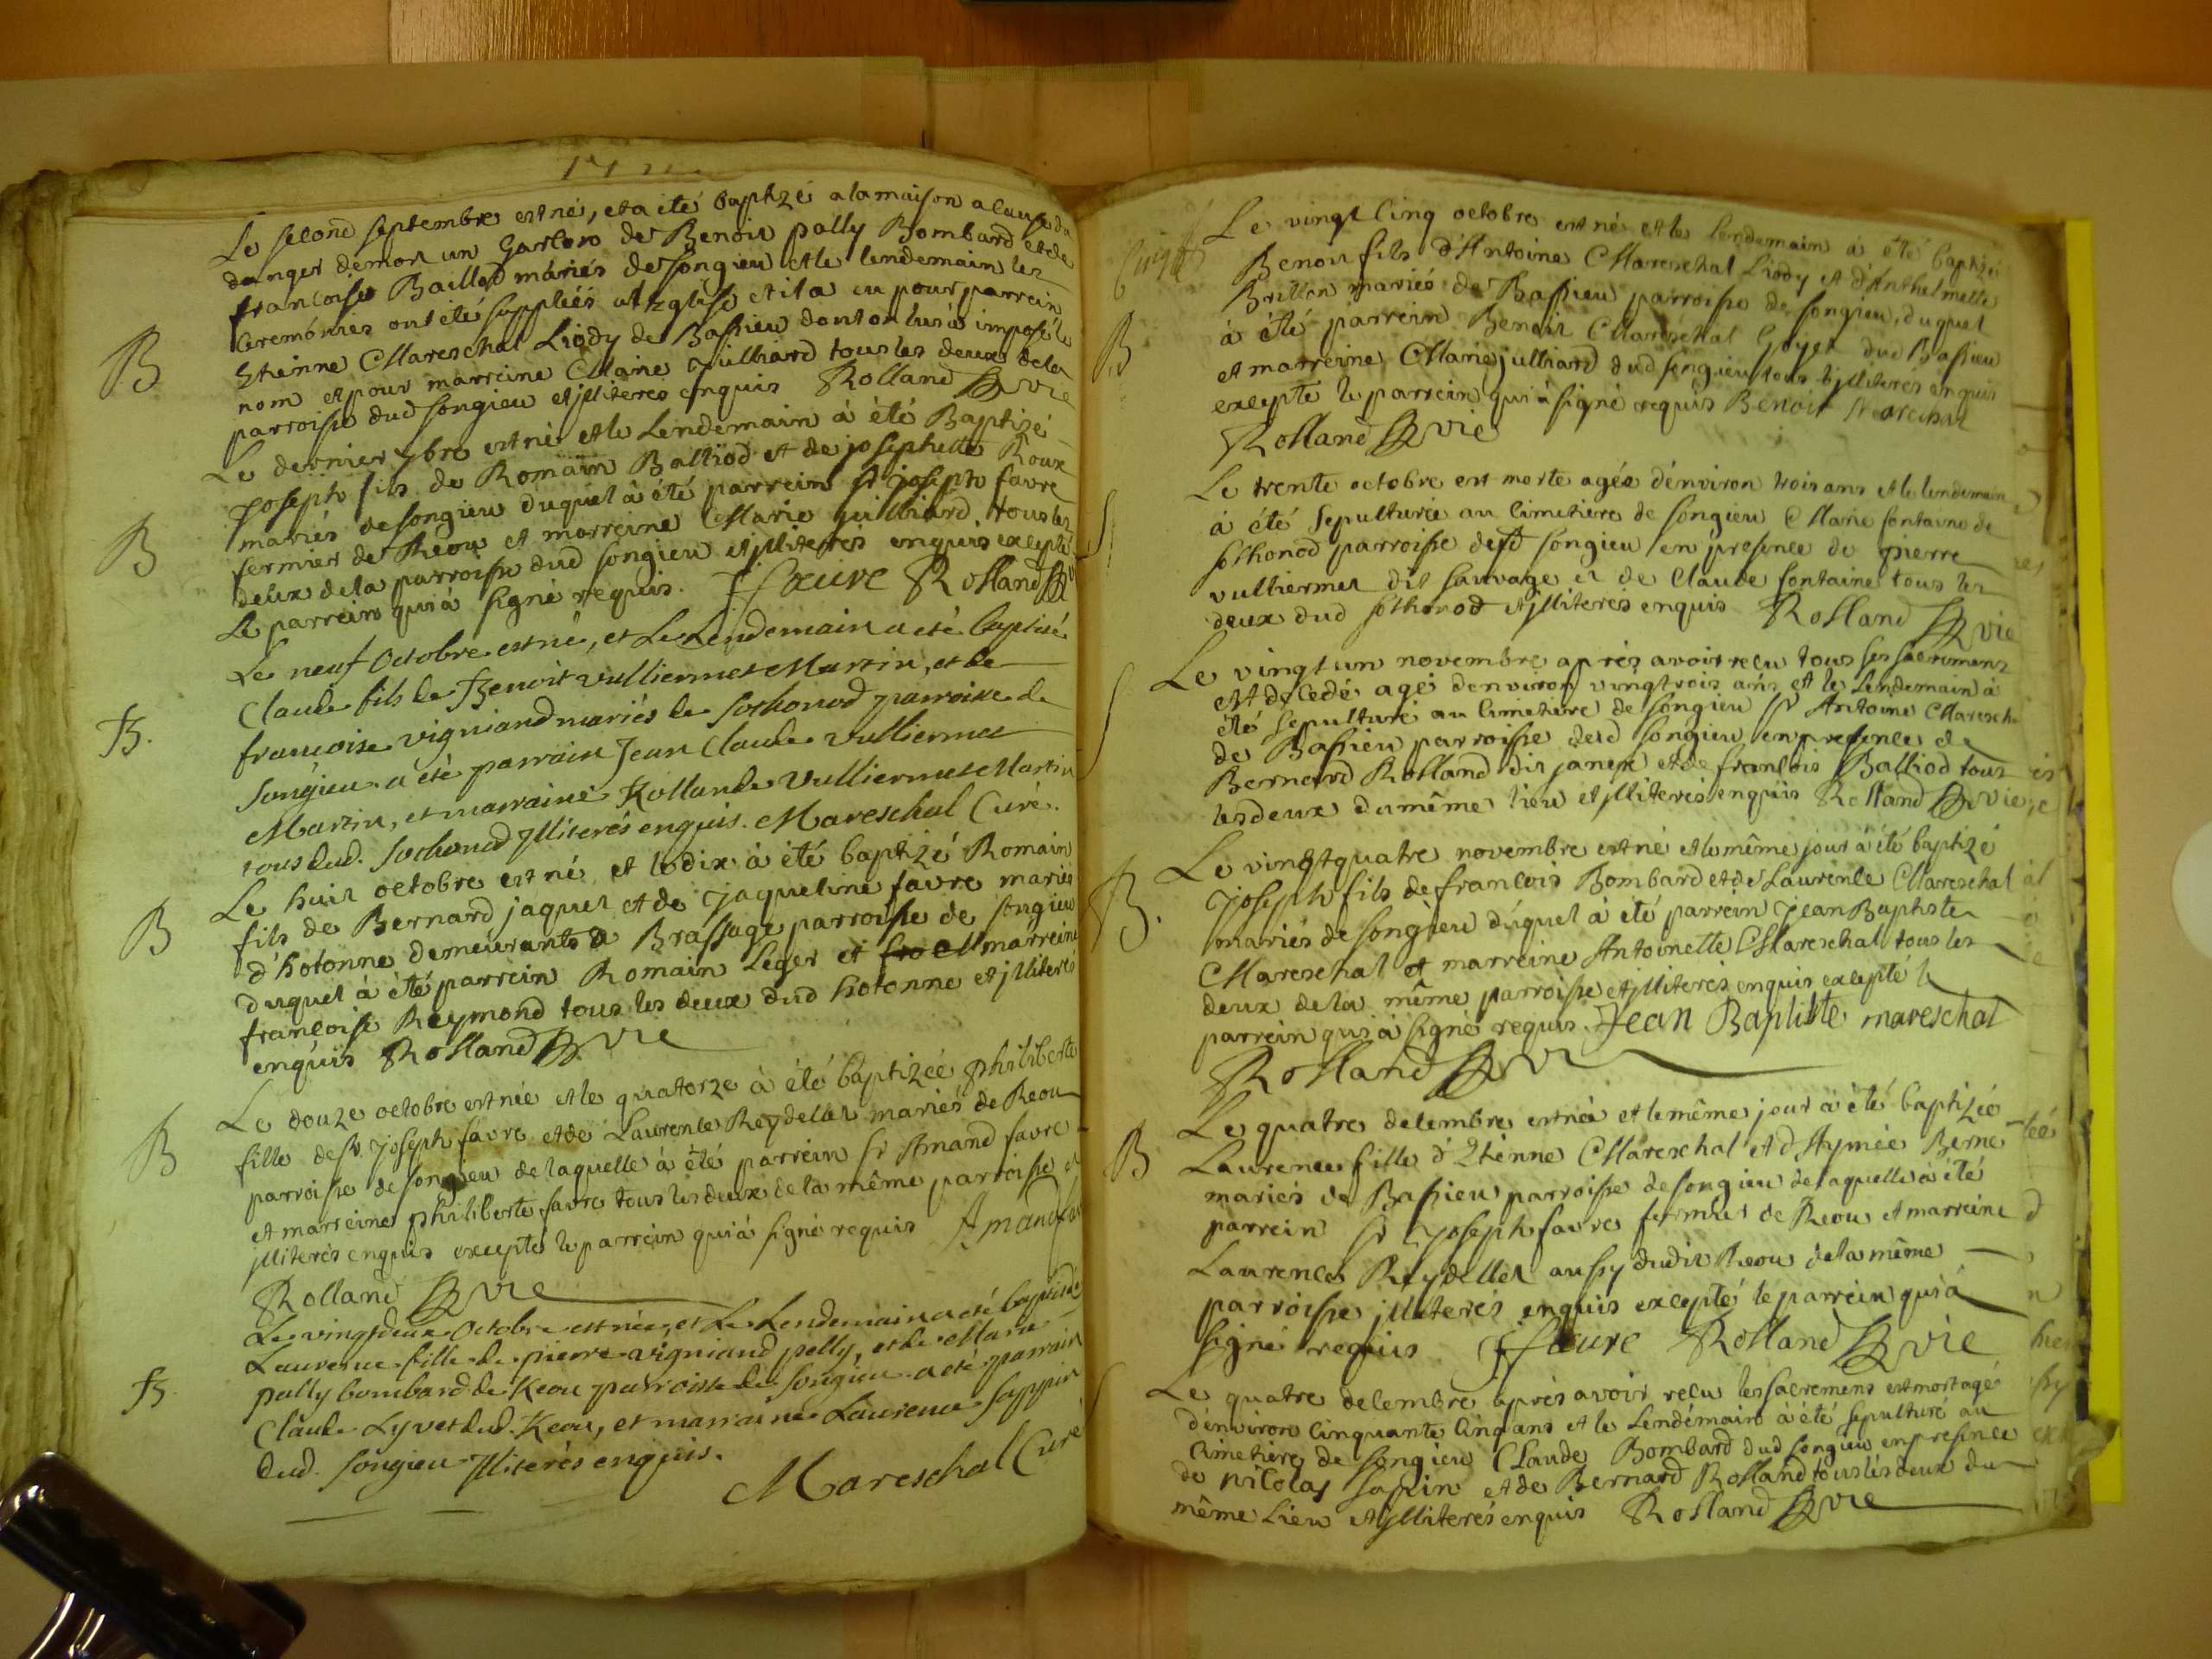 Le second septembre est né, et a été baptizé a la maison a cause du
danger de mort un garcon de Benoit pally Bombard et de
francoise Balliod mariés de songieu et le lendemain les
ceremonies ont été suppliées a l'Eglise et il a eu pour parrein
Etienne Mareschal Liody de Bassieu dont on lui a imposé le
nom et pour marreine Marie Julliard tous les deux de la
parroisse dud songieu et jlliterés enquis Rolland vie
B
Le dernier 7bre est né et le Lendemain à été Baptizé
joseph fils de Romain Balliod et de josephette Roux
mariés de songieu duquel à été parrein sr joseph favre
fermier de Reou et marreine Marie julliard tous les
deux de la parroisse dud songieu et jlliterés enquis excepté
Le parrein qui à signé requis. J favre Rolland
B
Le neuf Octobre est né, et Le Lendemain a eté baptisé
Claude fils de Benoit vulliermet Martin, et de
francoise vigniand mariés de sothonod parroisse de
songieu a été parrain Jean Claude vulliermet
Martin, et marraine Rollande vulliermet Martin
tous dud. sothonod jlliterés enquis. Mareschal Curé.
B.
Le huit octobre est né et le dix à été baptizé Romain
fils de Bernard jaquet et de jaqueline favre mariés
d'hotonne demeurants a Brassage parroisse de songieu
duquel à été parrein Romain Leger et marreine
francoise Reymond tous les deux dud hotonne et jlliterés
enquis Rolland vie
B
Le douze octobre est née et le quatorze à été baptizée philiberte
fille de sr. joseph favre et de Laurence Reydellet mariés de Reou
parroisse de songieu de laquelle à été parrein sr Amand favre
et marreine philiberte favre tous les deux de la même parroisse et
jlliterés enquis excepté le parrein qui à signé requis Amand fav
Rolland vie
B
Le vingt deux Octobre est née, et Le Lendemain a eté baptisée
Laurence fille de pierre vigniand pelly, et de Marie
pally bombard de Reou parroisse de songieu a eté parrain
Claude Lyvet dud. Reou, et marraine Laurence sappin
dud. songieu jlliterés enquis.
Mareschal Curé
B
Le vingt cinq octobre est né et le lendemain à été baptizé
Benoit fils d'Antoine Mareschal Liody et d'Anthelmette
Brillon mariés de Bassieu parroisse de songieu, duquel
à été parrein Benoit Mareschal Goyet dud Bassieu
et marreine Marie julliard dud songieu tous jlliterés enquis
excepté le parrein qui à signé requis Benoit Marechal
Rolland vie
B
Le trente octobre est morte agée d'environ trois ans et le lendemain
à été sepulturée au cimetiere de songieu Marie fontaine de
sothonod parroisse dud songieu en presence de pierre
vulliermet dit sauvage et de Claude fontaine tous les
deux dud sothonod et jlliterés enquis Rolland vie
S
Le vingt un novembre aprés avoir reçu tous ses sacremens
est decedé agé d'environ vingt trois ans et le Lendemain à
été sepulturé au cimetiere de songieu sr Antoine Maresch
de Bassieu parroisse dud songieu en presence de
Bernard Rolland dit janex et de francois Balliod tous
les deux du même lieu et jlliterés enquis Rolland vie
S
Le vingt quatre novembre est né et le même jour à été baptizé
joseph fils de francois Bombard et de Laurence Mareschal
mariés de songieu duquel à été parrein jean Baptiste
Mareschal et marreine Antoinette Mareschal tous les
deux de la même parroisse et jlliterés enquis excepté le
parrein qui à signé requis. Jean Baptiste mareschal
Rolland
B.
Le quatre decembre est née et le même jour à été baptizée
Laurence fille d'Etienne Mareschal et d'Aymée Berne
mariés de Bassieu parroisse de songieu de laquelle à été
parrein sr joseph favre fermier de Reou et marreine
Laurence Reydellet aussy dudit Reou de la même
parroisse jlliterés enquis excepté le parrein qui à
signé requis J favre Rolland vie
B
Le quatre decembre aprés avoir reçu les sacremens est mort agé
d'environ cinquante cinq ans et le Lendemain à été sepulturé au
Cimetiere de songieu Claude Bombard dud songieu en presence
de nicolas sapin et de Bernard Rolland tous les deux du
même Lieu et jlliterés enquis Rolland vie